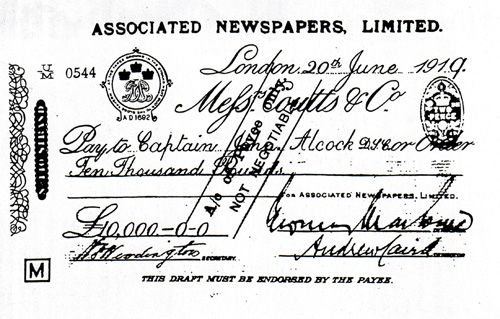 ASSOCIATED NEWSPAPERS, LIMITED.
U/M 0544
London, 20th June 1919.
Messrs Coutts & Co
A.D 1692
Pay to Captain John Alcock D.S.C or Order
Ten Thousand Pounds
A/c of Payee only
NOT NEGOTIABLE
FOR ASSOCIATED NEWSPAPERS, LIMITED.
£10,000-0-0
SECRETARY.
Andrew Caird
M
THIS DRAFT MUST BE ENDORSED BY THE PAYEE.